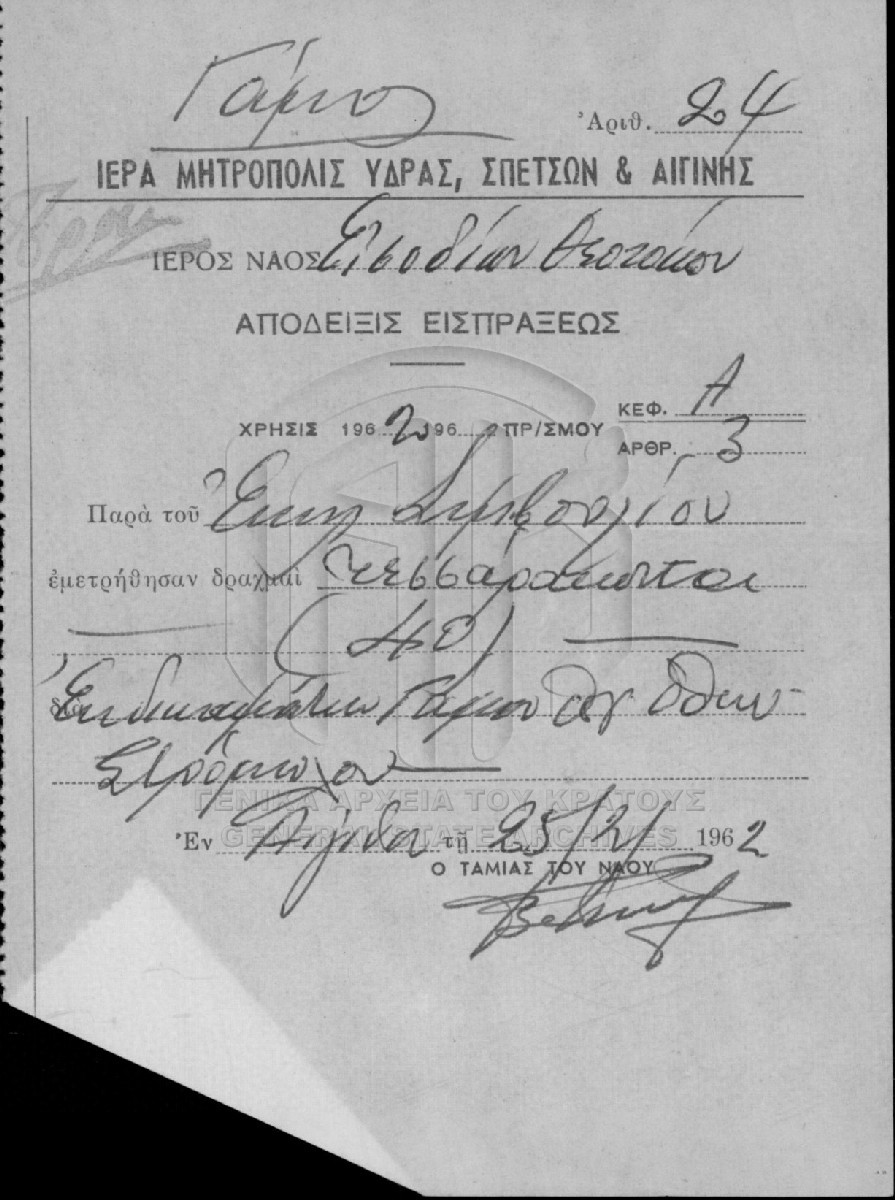 Γάμος
Ἀριθ. 24
ΙΕΡΑ ΜΗΤΡΟΠΟΛΙΣ ΥΔΡΑΣ, ΣΠΕΤΣΩΝ & ΑΙΓΙΝΗΣ
ΙΕΡΟΣ ΝΑΟΣ Εἰσοδίων Θεοτόκου
ΑΠΟΔΕΙΞΙΣ ΕΙΣΠΡΑΞΕΩΣ
ΚΕΦ. Α
ΧΡΗΣΙΣ 1962 196 ΠΡ/ΣΜΟΥ
ΑΡΘΡ. 3
Παρὰ τοῦ Ἐκκλ Συμβουλίου
ἐμετρήθησαν δραχμαὶ τεσσαράκοντα
(40)
Γάμου
Ἐν Αἰγίνῃ τῇ 25/2/ 1962
Ο ΤΑΜΙΑΣ ΤΟΥ ΝΑΟΥ
ΓΕΝΙΚΑ ΑΡΧΕΙΑ ΤΟΥ ΚΡΑΤΟΥΣ
GENERAL STATE ARCHIVES